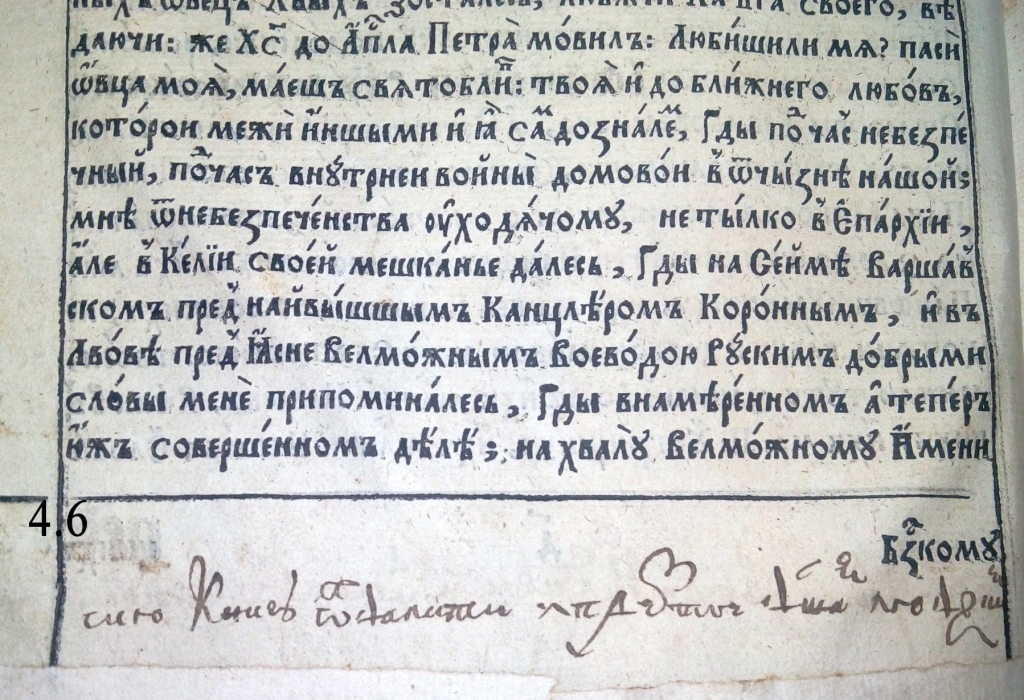 даючи: же Хс҃ до Ап҃ла Петра̀ мо́вилъ: Люби́шили мя? паси̂
ѡ҆́вца моѧ̀, ма́ешъ святобли̂: твоѧ̀ и҆ до бли́жнего любо́въ,
кото́рои межѝ и҆́ншыми и҆ ꙗ҆̀ са́ дозна́ле, Гды по́ час небезпе́
чный, по́часъ вну́трнеи войны̀ домово́и в ѿчы́знѣ на́шой;
мнѣ ѿнебезпече́нства ѹ҆ходѧ́чомꙋ, не ты́лко в Епа́рхїи,
а҆́ле в Ке́лїи свое́й мешка́нье да́лесь, Гды на Се́ймѣ Варша́в
скомъ пред найвы́шшымъ Канцлѣ́ромъ Коро́ннымъ, и҆ въ
Лво́вѣ пред Ꙗ҆́сне Велмо́жнымъ Воево́дою Рꙋ́скимъ до́брыми
сло́вы менѐ припомина́лесь, Гды внамѣ́ренномъ а҆ тепе́ръ
ю҆́жъ соверше́нномъ дѣ́лѣ; на хвалꙋ̀ Велмо́жномꙋ И҆́мени
4.6
Бз҃комꙋ
сию